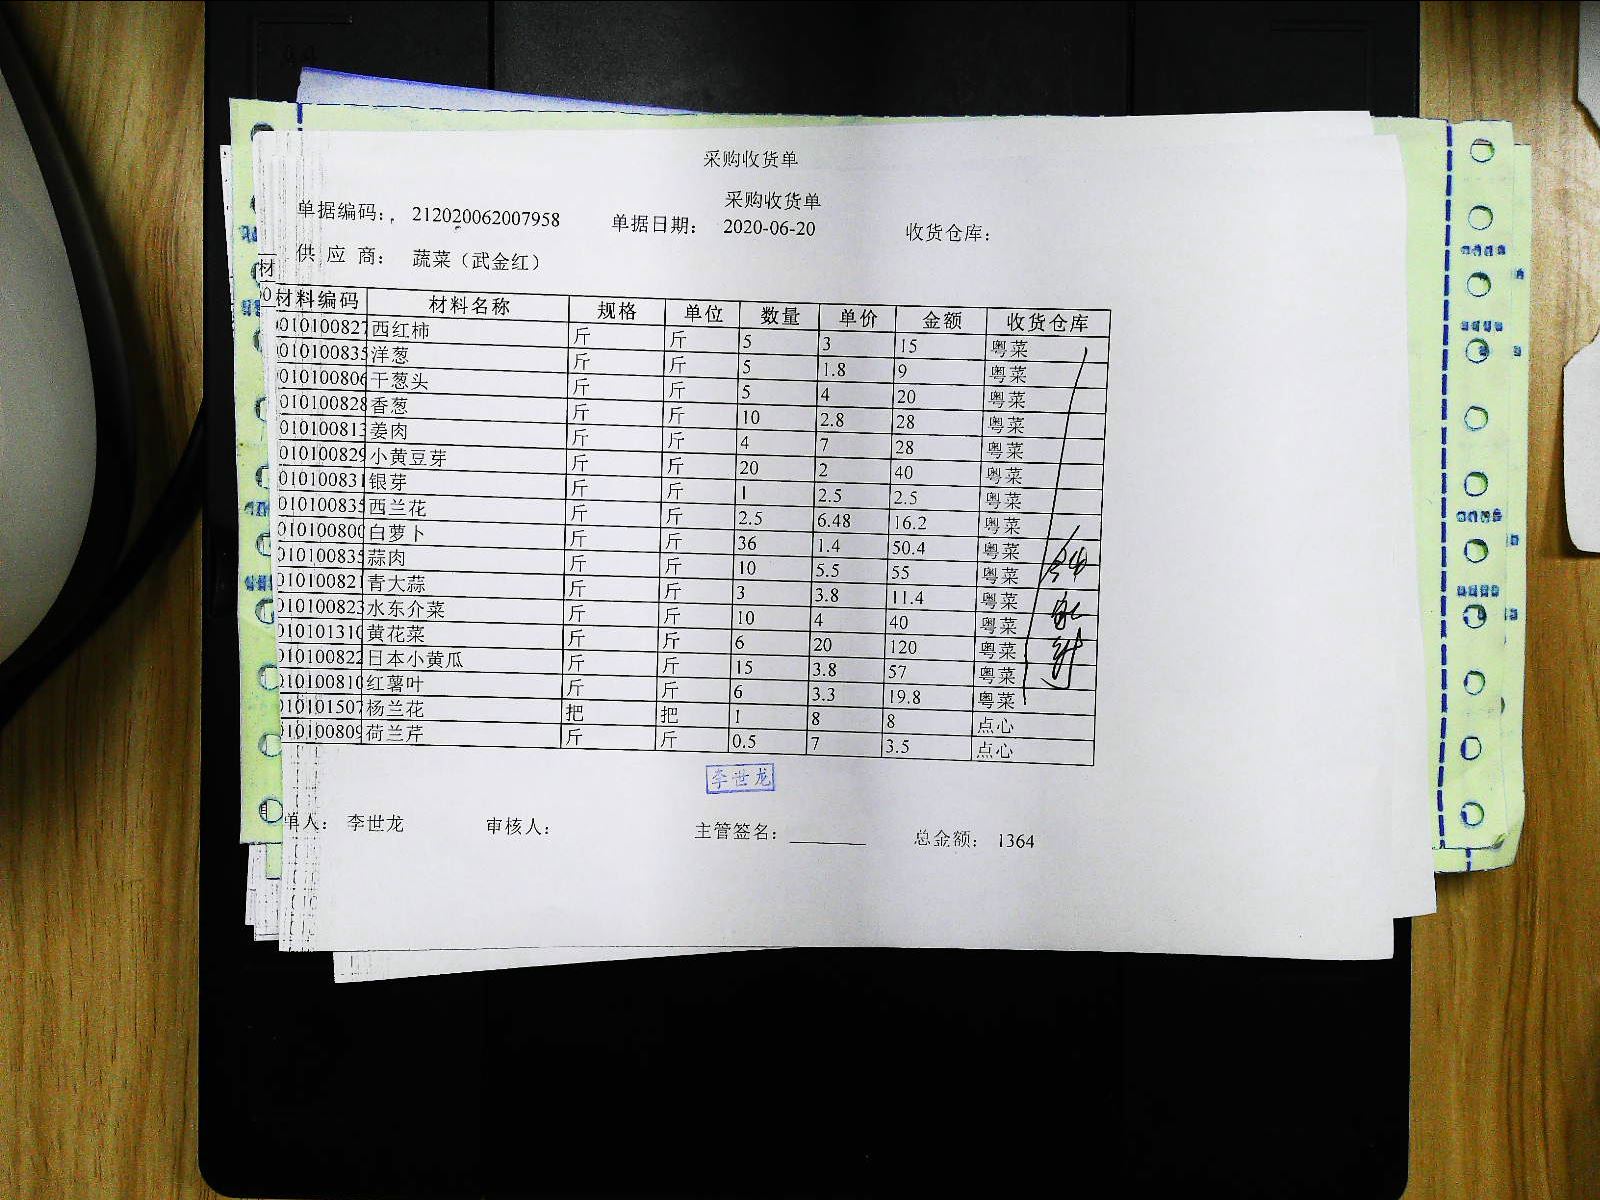 采购收货单
采购收货单
单据编码： 212020062007958 单据日期： 2020-06-20 收货仓库：
供 应 商： 蔬菜（武金红）
材料编码 材料名称 规格 单位 数量 单价 金额 收货仓库
010100827 西红柿 斤 斤 5 3 15 粤菜
010100835 洋葱 斤 斤 5 1.8 9 粤菜
010100806 干葱头 斤 斤 5 4 20 粤菜
010100828 香葱 斤 斤 10 2.8 28 粤菜
010100813 姜肉 斤 斤 4 7 28 粤菜
010100829 小黄豆芽 斤 斤 20 2 40 粤菜
010100831 银芽 斤 斤 1 2.5 2.5 粤菜
010100835 西兰花 斤 斤 2.5 6.48 16.2 粤菜
010100800 白萝卜 斤 斤 36 1.4 50.4 粤菜
010100835 蒜肉 斤 斤 10 5.5 55 粤菜
010100821 青大蒜 斤 斤 3 3.8 11.4 粤菜
010100823 水东介菜 斤 斤 10 4 40 粤菜
010101310 黄花菜 斤 斤 6 20 120 粤菜
010100822 日本小黄瓜 斤 斤 15 3.8 57 粤菜
010100810 红薯叶 斤 斤 6 3.3 19.8 粤菜
010101507 杨兰花 把 把 1 8 8 点心
010100809 荷兰芹 斤 斤 0.5 7 3.5 点心
李世龙
单人： 李世龙 审核人： 主管签名： 总金额： 1364